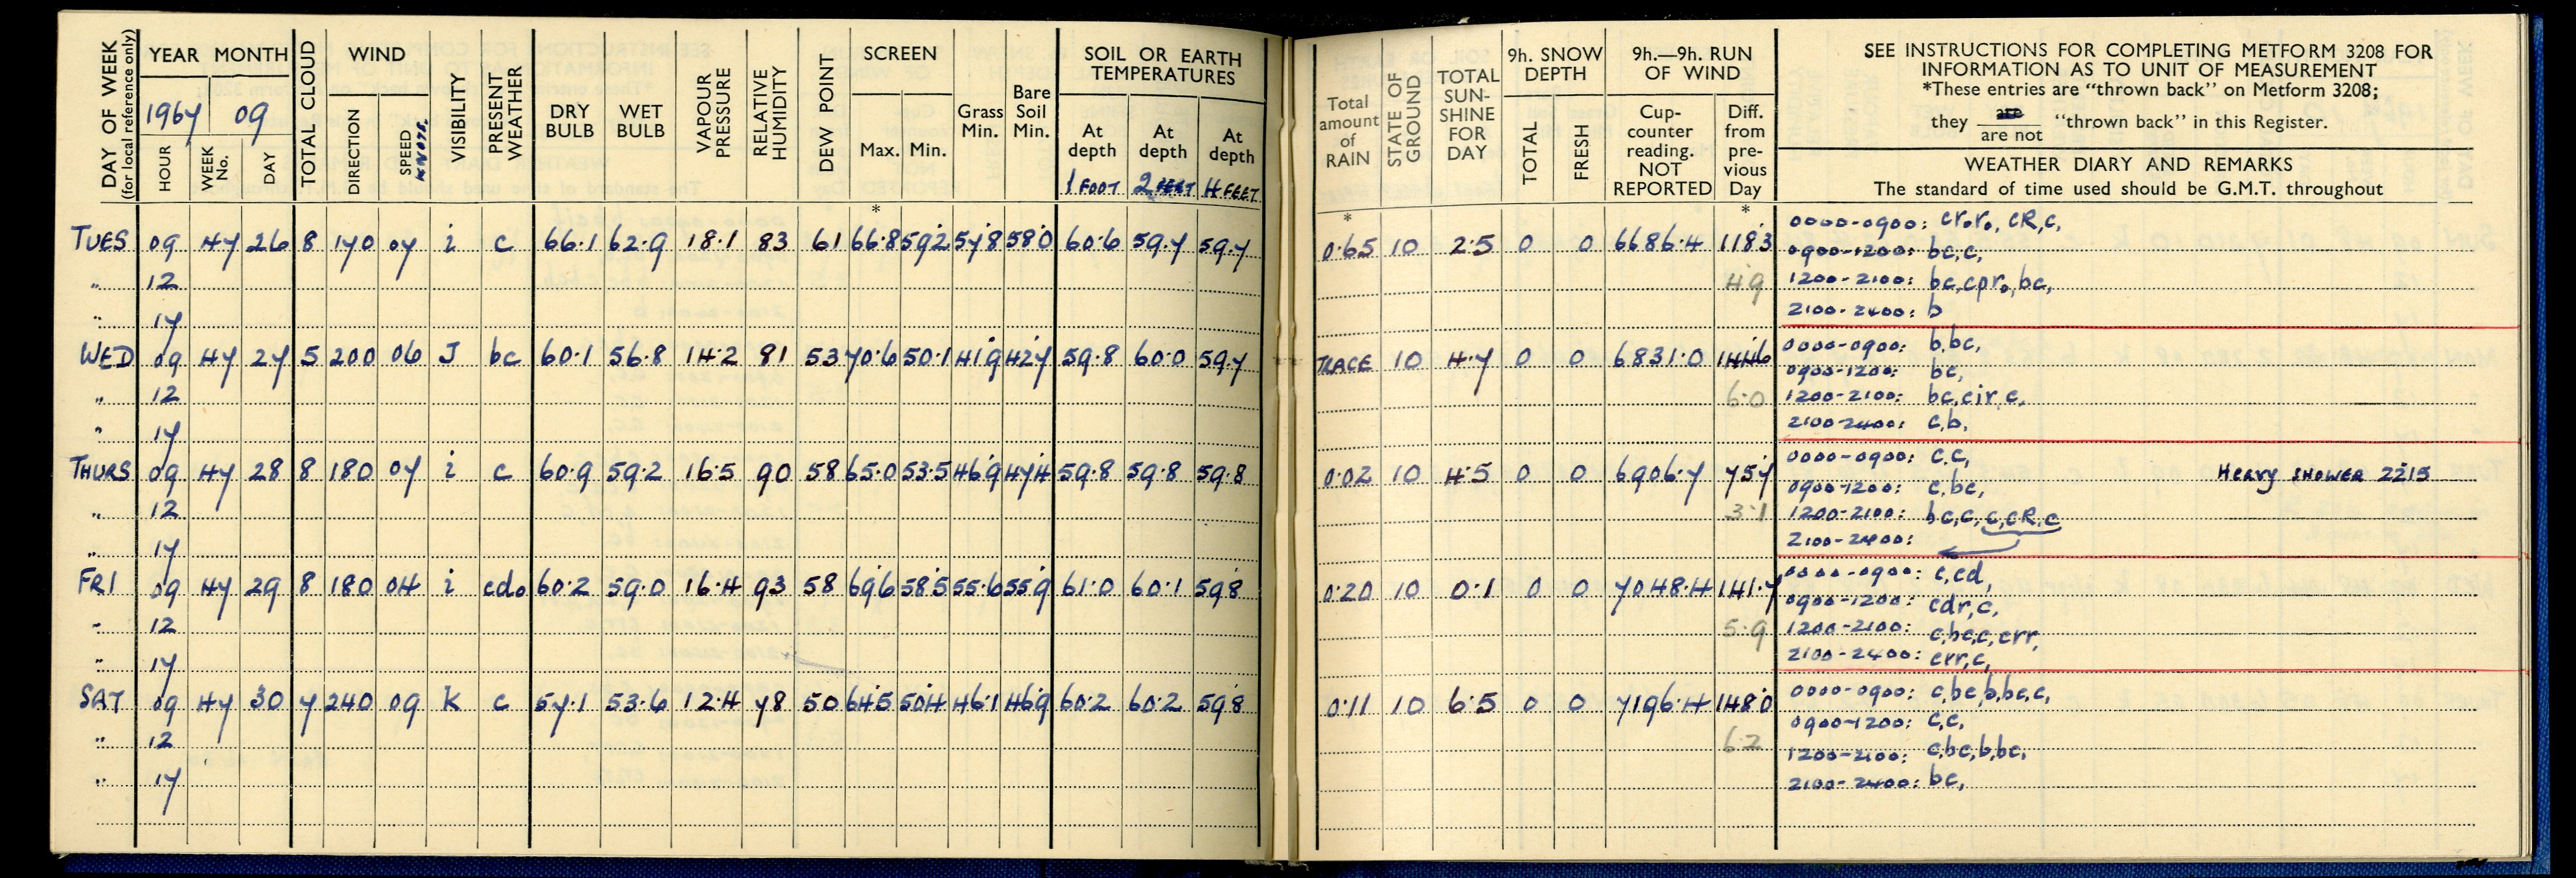 DAY OF WEEK
(for local reference only)
YEAR MONTH
1967 09
HOUR
WEEK No.
DAY
TOTAL CLOUD
WIND
DIRECTION
SPEED KNOTS.
VISIBILITY
PRESENT WEATHER
DRY BULB
WET BULB
VAPOUR PRESSURE
RELATIVE HUMIDITY
DEW POINT
SCREEN
Max. Min.
Grass Min.
Bare Soil Min.
SOIL OR EARTH
TEMPERATURES
At depth 1 FOOT
At depth 2 FEET
At depth 4 FEET
Total amount of RAIN
STATE OF GROUND
TOTAL SUN-SHINE FOR DAY
9h. SNOW DEPTH
TOTAL
FRESH
9h.—9h. RUN OF WIND
Cup-counter reading. NOT REPORTED
Diff. from pre-vious Day
SEE INSTRUCTIONS FOR COMPLETING METFORM 3208 FOR
INFORMATION AS TO UNIT OF MEASUREMENT
*These entries are "thrown back" on Metform 3208;
they are / are not "thrown back" in this Register.
WEATHER DIARY AND REMARKS
The standard of time used should be G.M.T. throughout
* * *
TUES 09 47 26 8 170 07 i c 66.1 62.9 18.1 83 61 66.8 59.2 57.8 58.0 60.6 59.7 59.7 0.65 10 2.5 0 0 6686.4 118.3
0000-0900: cr₀r₀, cR,c,
0900-1200: bc,c,
" 12 4.9 1200-2100: bc,cpr₀,bc,
" 17 2100-2400: b
WED 09 47 27 5 200 06 J bc 60.1 56.8 14.2 81 53 70.6 50.1 41.9 42.7 59.8 60.0 59.7 TRACE 10 4.7 0 0 6831.0 144.6
0000-0900: b,bc,
0900-1200: bc,
" 12 6.0 1200-2100: bc,cir,c,
" 17 2100-2400: c,b,
THURS 09 47 28 8 180 07 i c 60.9 59.2 16.5 90 58 65.0 53.5 46.9 47.4 59.8 59.8 59.8 0.02 10 4.5 0 0 6906.7 75.7
0000-0900: c,c, HEAVY SHOWER 2215
0900-1200: c,bc,
" 12 3.1 1200-2100: bc,c, c,cR,c
" 17 2100-2400:
FRI 09 47 29 8 180 04 i cd₀ 60.2 59.0 16.4 93 58 69.6 58.5 55.6 55.9 61.0 60.1 59.8 0.20 10 0.1 0 0 7048.4 141.7
0000-0900: c,cd,
0900-1200: cdr,c,
" 12 5.9 1200-2100: c,bc,c,crr,
" 17 2100-2400: crr,c,
SAT 09 47 30 7 240 09 K c 57.1 53.6 12.4 78 50 64.5 50.4 46.1 46.9 60.2 60.2 59.8 0.11 10 6.5 0 0 7196.4 148.0
0000-0900: c,bc,b,bc,c,
0900-1200: c,c,
" 12 6.2 1200-2100: c,bc,b,bc,
" 17 2100-2400: bc,